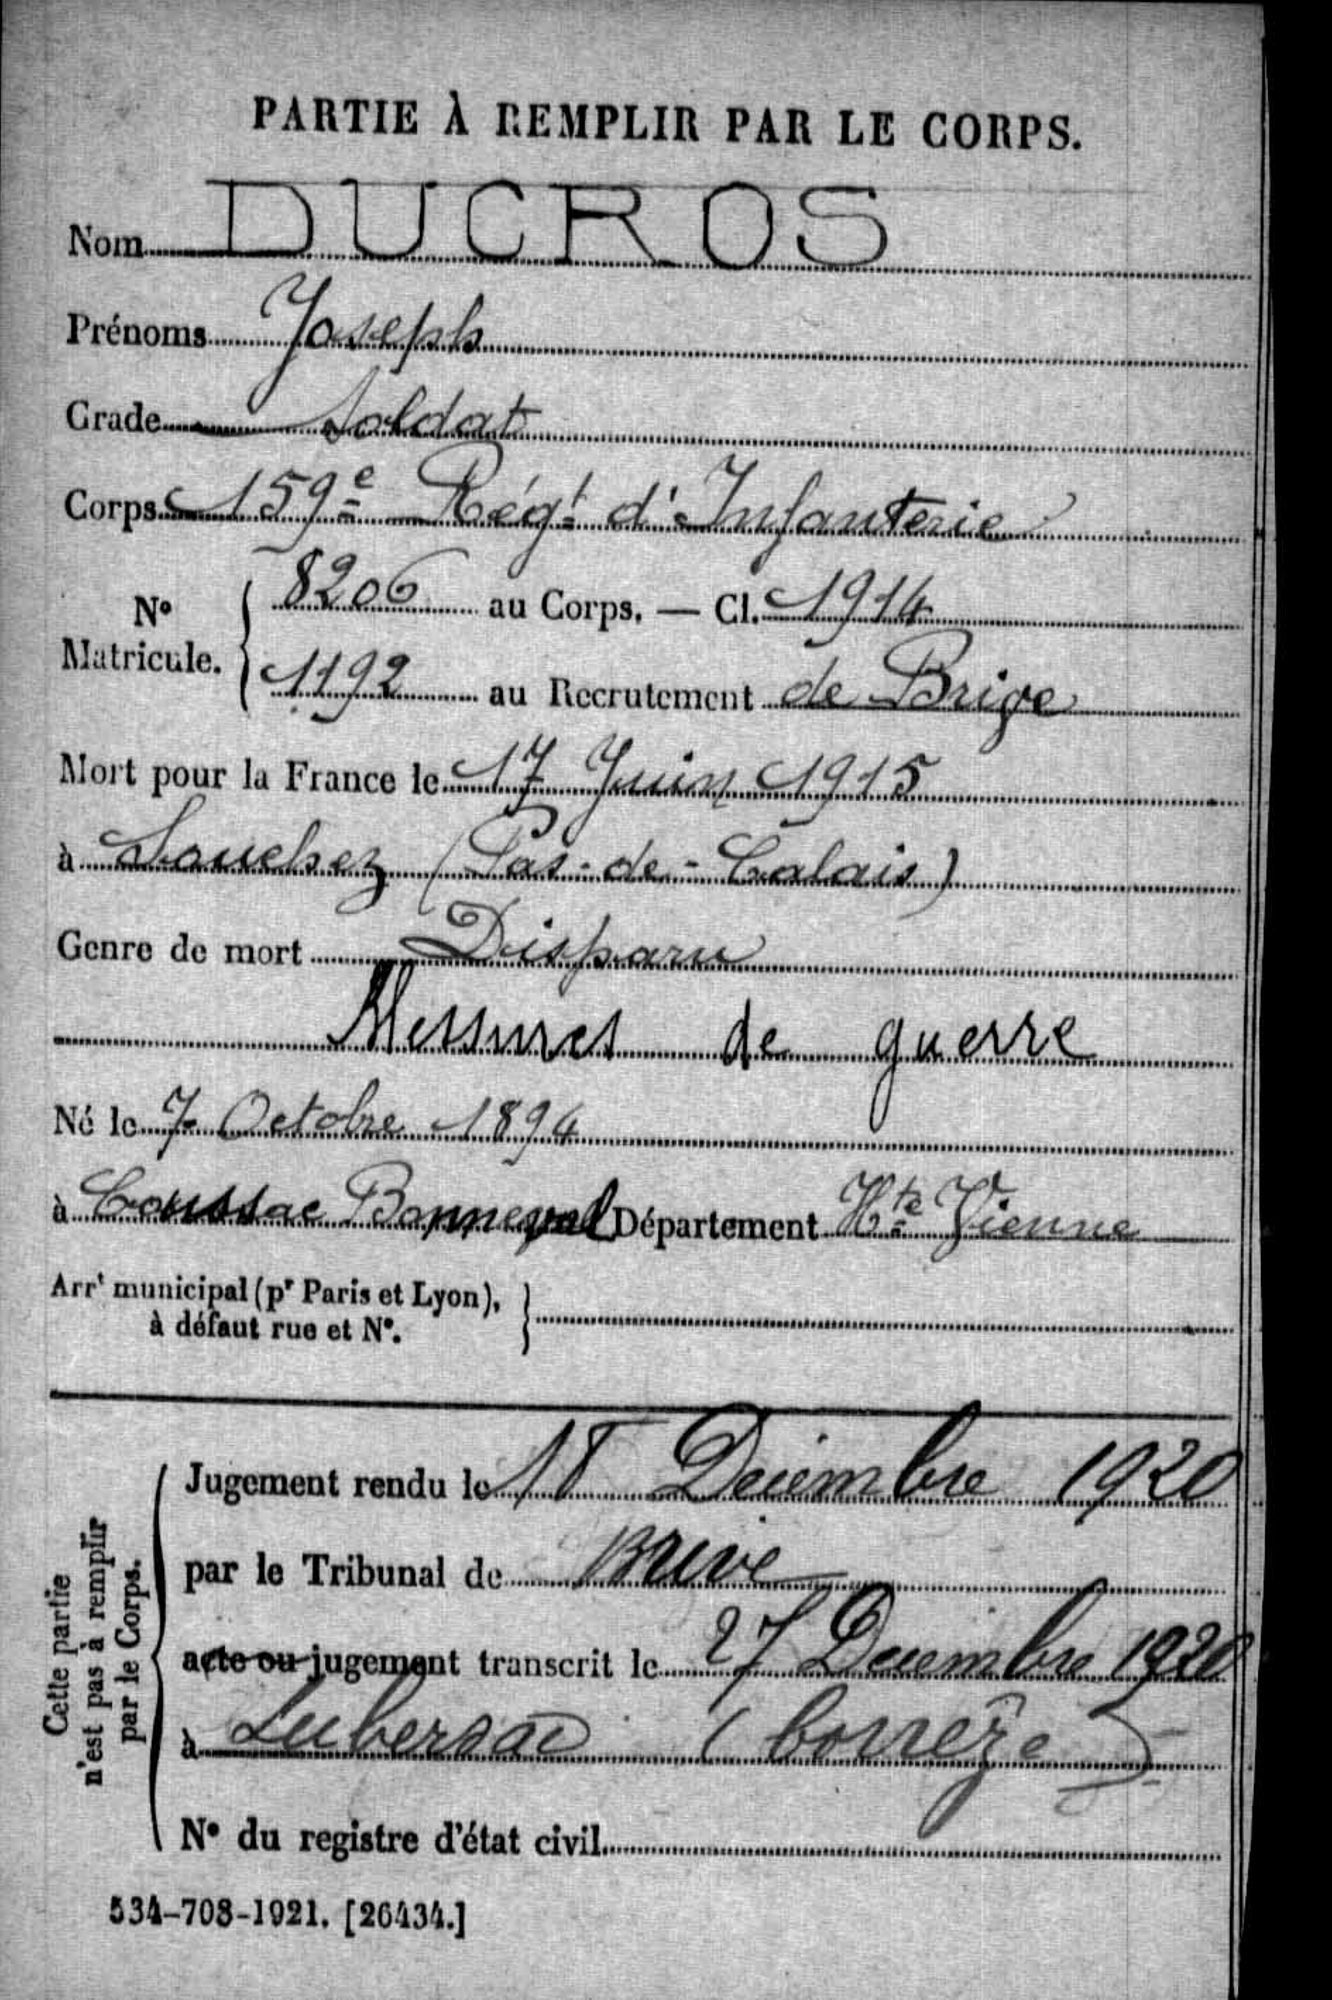 PARTIE À REMPLIR PAR LE CORPS.
Nom DUCROS
Prénoms Joseph
Grade Soldat
Corps 159e Régt d'Infanterie
No Matricule. 8206 au Corps. — Cl. 1914
1192 au Recrutement de Brive
Mort pour la France le 17 Juin 1915
à Souchez (Pas-de-Calais)
Genre de mort Disparu
Blessures de guerre
Né le 7 Octobre 1894
à Coussac Bonneval Département Hte Vienne
Arrt municipal (pr Paris et Lyon),
à défaut rue et No.
Cette partie
n'est pas à remplir
par le Corps.
Jugement rendu le 18 Décembre 1920
par le Tribunal de Brive
acte ou jugement transcrit le 27 Décembre 1920
à Lubersac (Corrèze)
No du registre d'état civil
534-708-1921. [26434.]